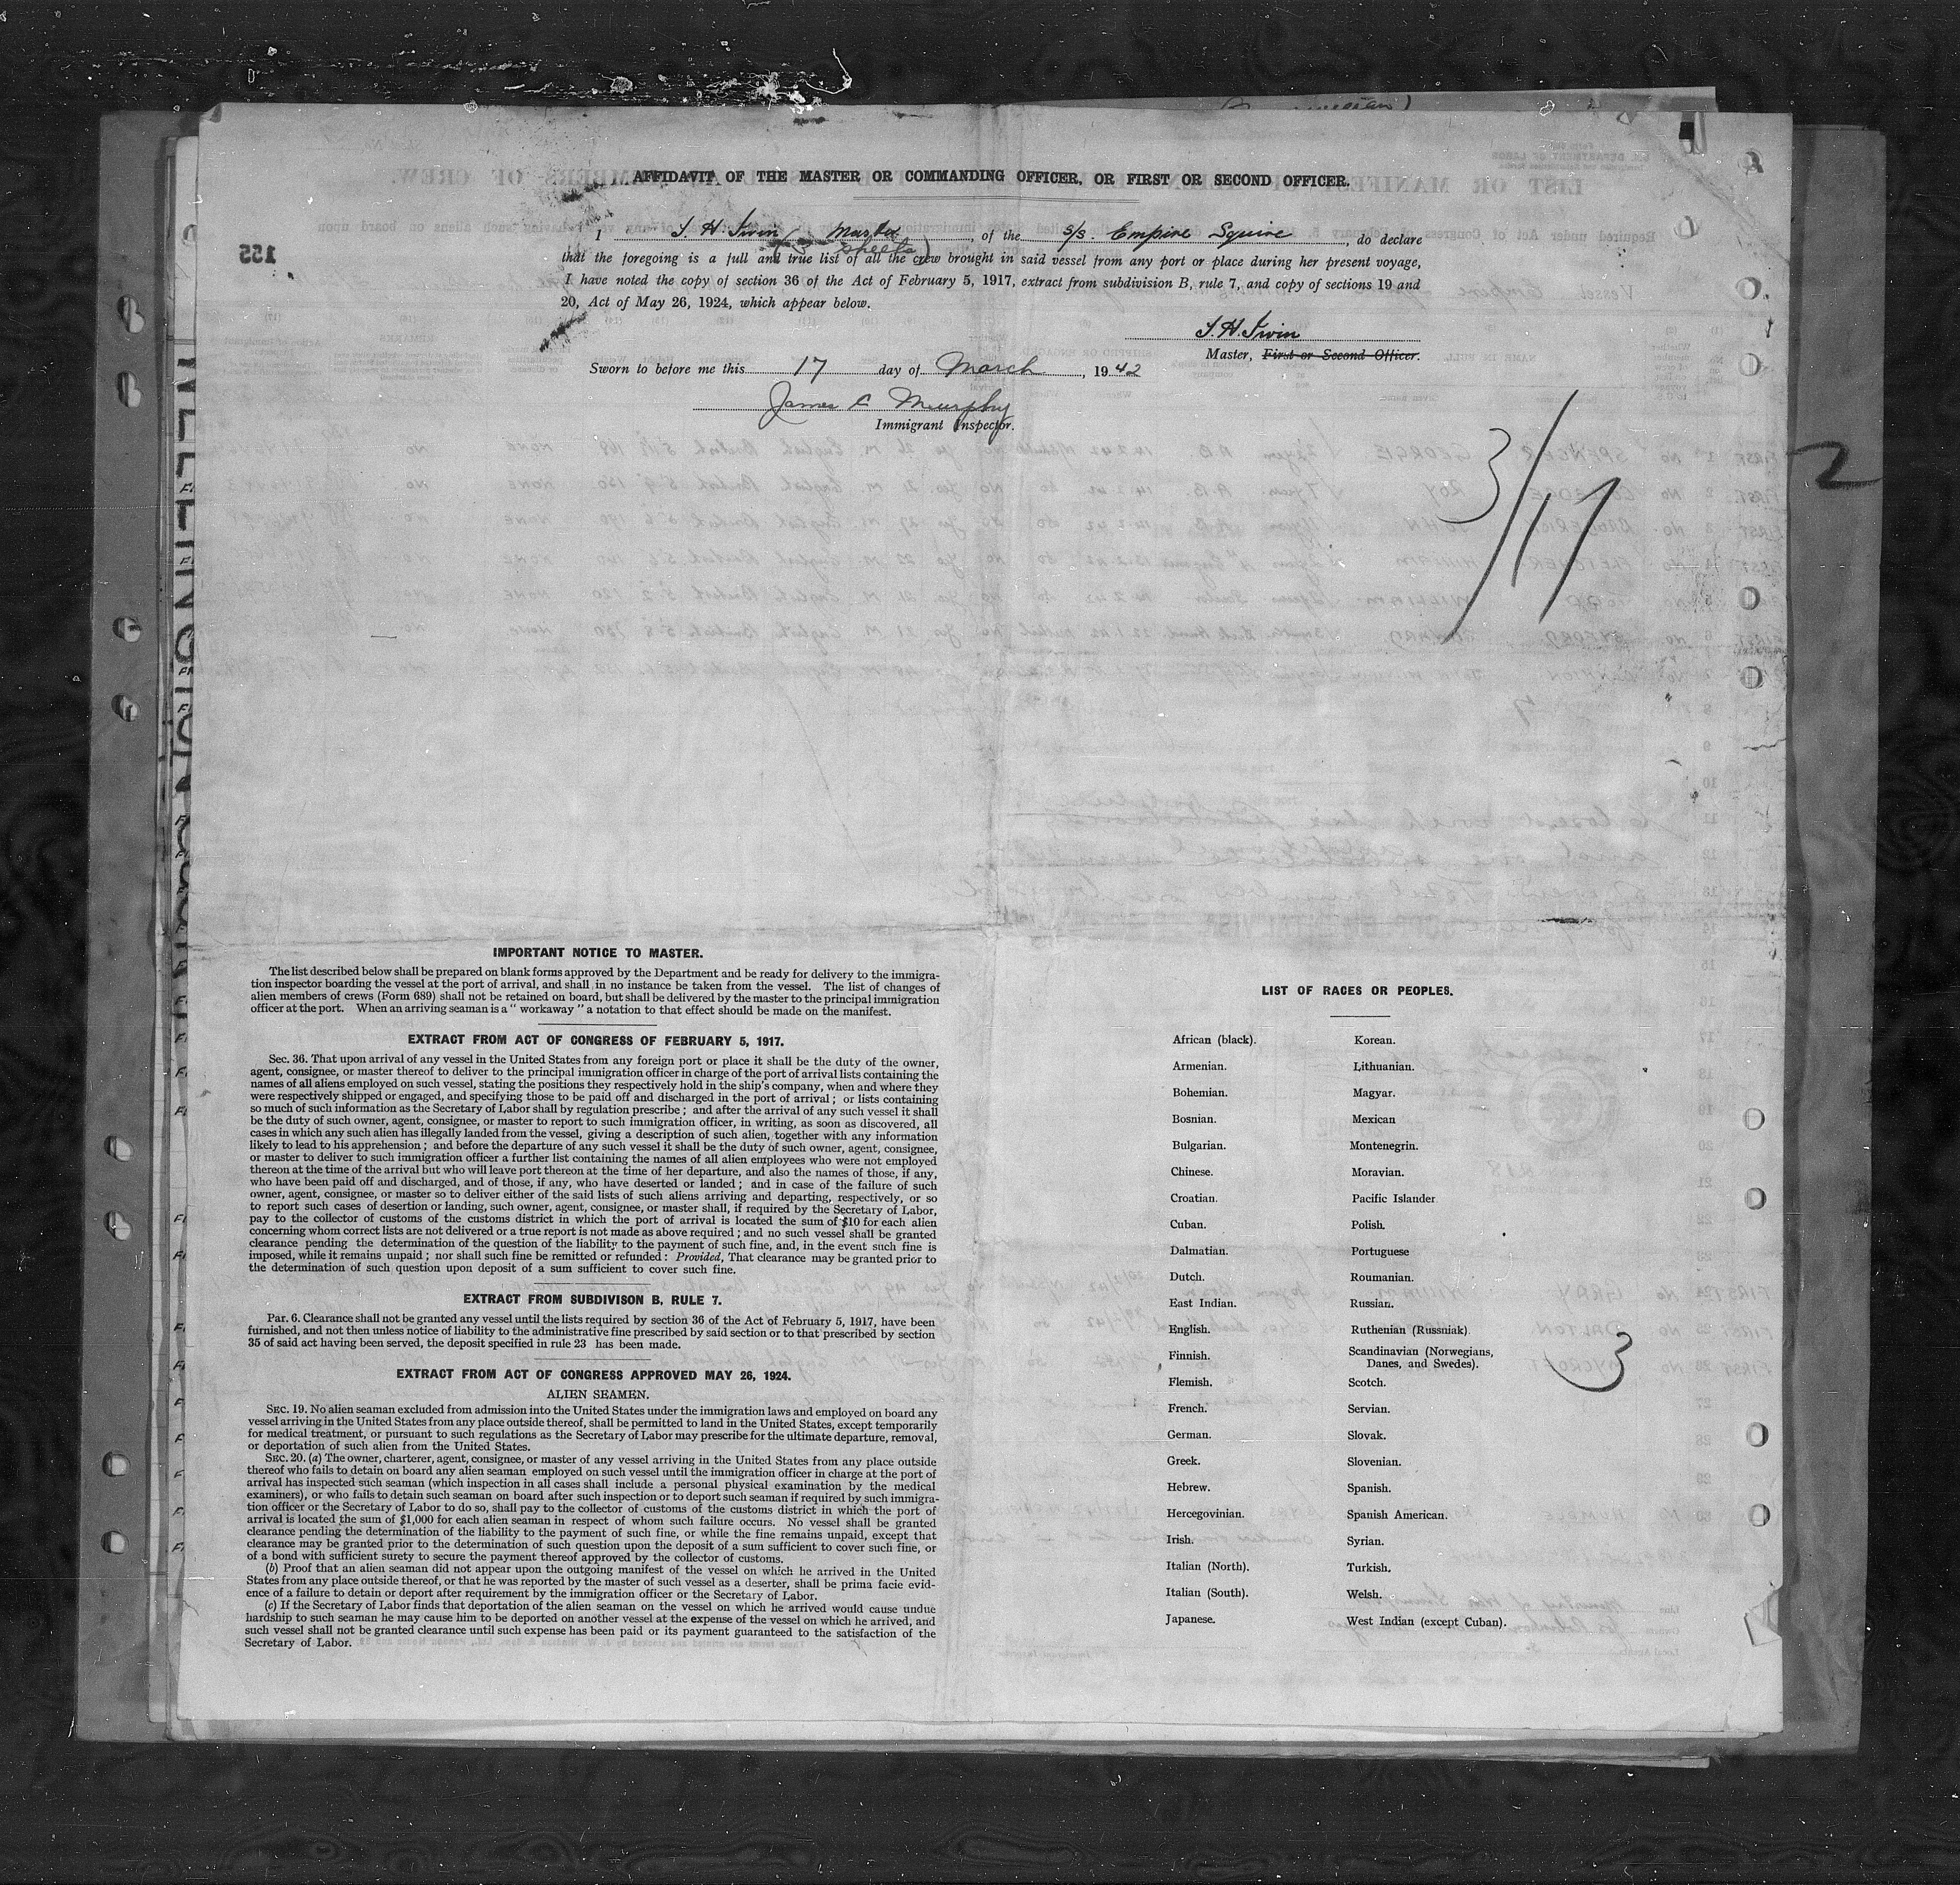 AFFIDAVIT OF THE MASTER OR COMMANDING OFFICER, OR FIRST OR SECOND OFFICER.
I J. H. Irwin, Master, of the S/S. Empire Squire, do declare
(3 sheets)
that the foregoing is a full and true list of all the crew brought in said vessel from any port or place during her present voyage,
I have noted the copy of section 36 of the Act of February 5, 1917, extract from subdivision B, rule 7, and copy of sections 19 and
20, Act of May 26, 1924, which appear below.
J. H. Irwin
Master, First or Second Officer.
Sworn to before me this 17 day of March, 1942
James C Murphy
Immigrant Inspector.
155
3/17
2
IMPORTANT NOTICE TO MASTER.
The list described below shall be prepared on blank forms approved by the Department and be ready for delivery to the immigra-
tion inspector boarding the vessel at the port of arrival, and shall in no instance be taken from the vessel. The list of changes of
alien members of crews (Form 689) shall not be retained on board, but shall be delivered by the master to the principal immigration
officer at the port. When an arriving seaman is a " workaway " a notation to that effect should be made on the manifest.
EXTRACT FROM ACT OF CONGRESS OF FEBRUARY 5, 1917.
Sec. 36. That upon arrival of any vessel in the United States from any foreign port or place it shall be the duty of the owner,
agent, consignee, or master thereof to deliver to the principal immigration officer in charge of the port of arrival lists containing the
names of all aliens employed on such vessel, stating the positions they respectively hold in the ship's company, when and where they
were respectively shipped or engaged, and specifying those to be paid off and discharged in the port of arrival ; or lists containing
so much of such information as the Secretary of Labor shall by regulation prescribe ; and after the arrival of any such vessel it shall
be the duty of such owner, agent, consignee, or master to report to such immigration officer, in writing, as soon as discovered, all
cases in which any such alien has illegally landed from the vessel, giving a description of such alien, together with any information
likely to lead to his apprehension ; and before the departure of any such vessel it shall be the duty of such owner, agent, consignee,
or master to deliver to such immigration officer a further list containing the names of all alien employees who were not employed
thereon at the time of the arrival but who will leave port thereon at the time of her departure, and also the names of those, if any,
who have been paid off and discharged, and of those, if any, who have deserted or landed ; and in case of the failure of such
owner, agent, consignee, or master so to deliver either of the said lists of such aliens arriving and departing, respectively, or so
to report such cases of desertion or landing, such owner, agent, consignee, or master shall, if required by the Secretary of Labor,
pay to the collector of customs of the customs district in which the port of arrival is located the sum of $10 for each alien
concerning whom correct lists are not delivered or a true report is not made as above required ; and no such vessel shall be granted
clearance pending the determination of the question of the liability to the payment of such fine, and, in the event such fine is
imposed, while it remains unpaid ; nor shall such fine be remitted or refunded : Provided, That clearance may be granted prior to
the determination of such question upon deposit of a sum sufficient to cover such fine.
EXTRACT FROM SUBDIVISON B, RULE 7.
Par. 6. Clearance shall not be granted any vessel until the lists required by section 36 of the Act of February 5, 1917, have been
furnished, and not then unless notice of liability to the administrative fine prescribed by said section or to that prescribed by section
35 of said act having been served, the deposit specified in rule 23 has been made.
EXTRACT FROM ACT OF CONGRESS APPROVED MAY 26, 1924.
ALIEN SEAMEN.
SEC. 19. No alien seaman excluded from admission into the United States under the immigration laws and employed on board any
vessel arriving in the United States from any place outside thereof, shall be permitted to land in the United States, except temporarily
for medical treatment, or pursuant to such regulations as the Secretary of Labor may prescribe for the ultimate departure, removal,
or deportation of such alien from the United States.
SEC. 20. (a) The owner, charterer, agent, consignee, or master of any vessel arriving in the United States from any place outside
thereof who fails to detain on board any alien seaman employed on such vessel until the immigration officer in charge at the port of
arrival has inspected such seaman (which inspection in all cases shall include a personal physical examination by the medical
examiners), or who fails to detain such seaman on board after such inspection or to deport such seaman if required by such immigra-
tion officer or the Secretary of Labor to do so, shall pay to the collector of customs of the customs district in which the port of
arrival is located the sum of $1,000 for each alien seaman in respect of whom such failure occurs. No vessel shall be granted
clearance pending the determination of the liability to the payment of such fine, or while the fine remains unpaid, except that
clearance may be granted prior to the determination of such question upon the deposit of a sum sufficient to cover such fine, or
of a bond with sufficient surety to secure the payment thereof approved by the collector of customs.
(b) Proof that an alien seaman did not appear upon the outgoing manifest of the vessel on which he arrived in the United
States from any place outside thereof, or that he was reported by the master of such vessel as a deserter, shall be prima facie evid-
ence of a failure to detain or deport after requirement by the immigration officer or the Secretary of Labor.
(c) If the Secretary of Labor finds that deportation of the alien seaman on the vessel on which he arrived would cause undue
hardship to such seaman he may cause him to be deported on another vessel at the expense of the vessel on which he arrived, and
such vessel shall not be granted clearance until such expense has been paid or its payment guaranteed to the satisfaction of the
Secretary of Labor.
LIST OF RACES OR PEOPLES.
African (black). Korean.
Armenian. Lithuanian.
Bohemian. Magyar.
Bosnian. Mexican
Bulgarian. Montenegrin.
Chinese. Moravian.
Croatian. Pacific Islander
Cuban. Polish.
Dalmatian. Portuguese
Dutch. Roumanian.
East Indian. Russian.
English. Ruthenian (Russniak)
Finnish. Scandinavian (Norwegians,
Danes, and Swedes).
Flemish. Scotch.
French. Servian.
German. Slovak.
Greek. Slovenian.
Hebrew. Spanish.
Hercegovinian. Spanish American.
Irish. Syrian.
Italian (North). Turkish.
Italian (South). Welsh.
Japanese. West Indian (except Cuban).
3